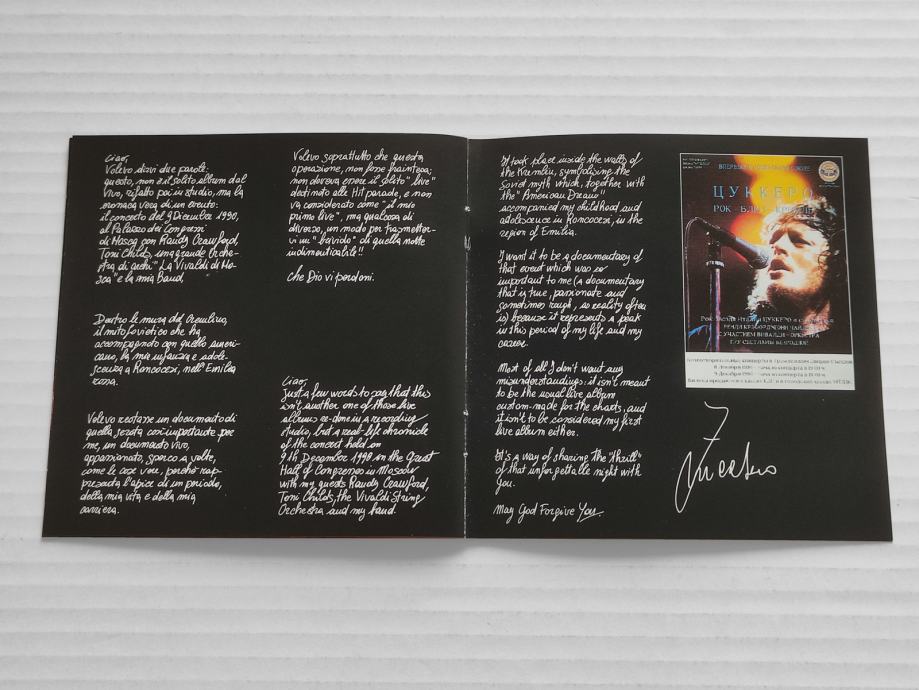 Ciao,
Volevo dirvi due parole:
questo, non è il solito album dal
vivo, rifatto poi in studio, ma la
cronaca vera di un evento:
il concerto del 9 Dicembre 1990,
al Palazzo dei Congressi
di Mosca con Randy Crawford,
Toni Childs, una grande Orche-
stra di archi "La Vivaldi di Mo-
sca" e la mia Band.
Dentro le mura del Cremlino,
il mito sovietico che ha
accompagnato con quello ameri-
cano, la mia infanzia e adole-
scenza a Roncocesi, nell'Emilia
rossa.
Volevo restasse un documento di
quella serata così importante per
me, un documento vivo,
appassionato, sporco a volte,
come le cose vere, perchè rap-
presenta l'apice di un periodo,
della mia vita e della mia
carriera.
Volevo soprattutto che questa
operazione, non fosse fraintesa;
non doveva essere il solito "live"
destinato alle Hit parade, e non
va considerato come "il mio
primo live", ma qualcosa di
diverso, un modo per trasmetter-
vi un "brivido" di quella notte
indimenticabile!!
Che Dio vi perdoni.
Ciao,
Just a few words to say that this
isn't another one of those live
albums re-done in a recording
studio, but a real-life chronicle
of the concert held on
9th December 1990 in the Great
Hall of Congresses in Moscow
with my guests Randy Crawford,
Toni Childs, the Vivaldi String
Orchestra and my band.
It took place inside the walls of
the Kremlin, symbolising the
Soviet myth which, together with
the "American Dream"
accompanied my childhood and
adolescence in Roncocesi, in the
region of Emilia.
I want it to be a documentary of
that event which was so
important to me (a documentary
that is true, passionate and
sometimes rough, as reality often
is) because it represents a peak
in this period of my life and my
career.
Most of all I don't want any
misunderstandings: it isn't meant
to be the usual live album
custom-made for the charts, and
it isn't to be considered my first
live album either.
It's a way of sharing the "thrill"
of that unforgettable night with
you.
May God Forgive You.
ЦУККЕРО
РОК - БЛЮЗ
С УЧАСТИЕМ ВИВАЛЬДИ - ОРКЕСТРА
П/У СВЕТЛАНЫ БЕЗРОДНОЙ
Zucchero